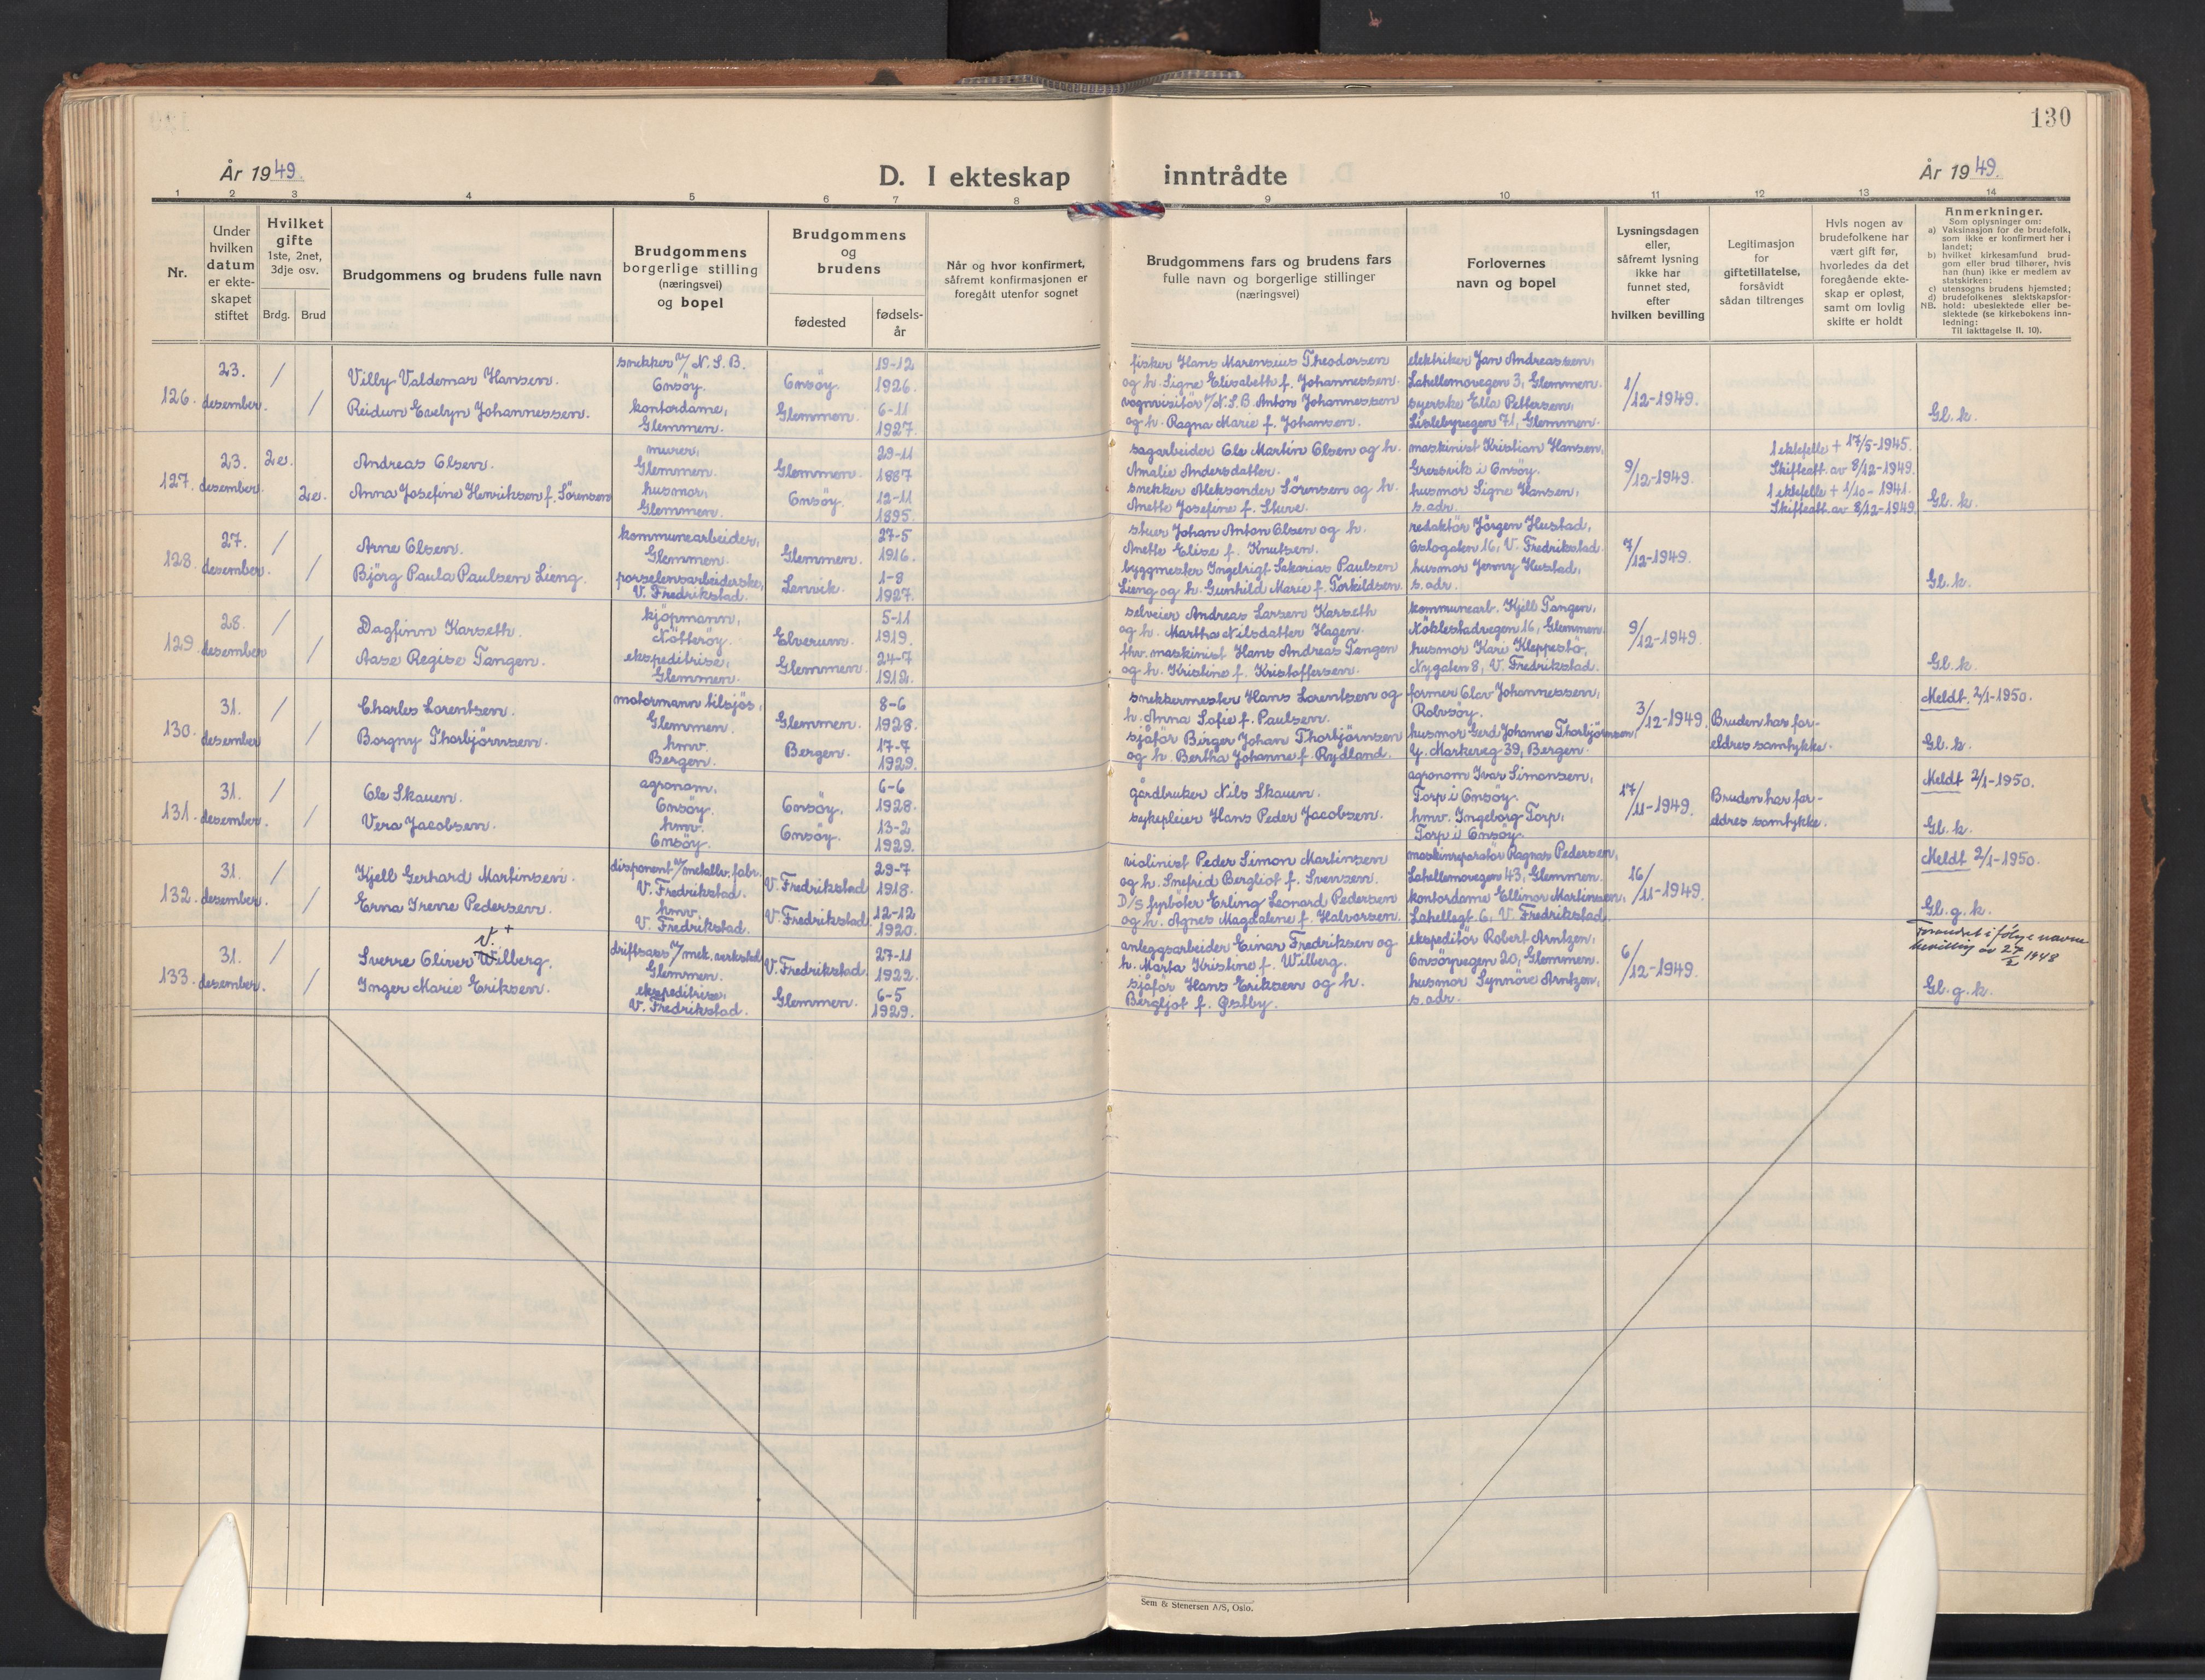 130
År 1949.
D. I ekteskap inntrådte
År 1949.
1 2 3 4 5 6 7 8 9 10 11 12 13 14
Nr.
Under hvilken datum er ekte-skapet stiftet
Hvilket gifte 1ste, 2net, 3dje osv.
Brdg. Brud
Brudgommens og brudens fulle navn
Brudgommens borgerlige stilling (næringsvei) og bopel
Brudgommens og brudens
fødested
fødsels-år
Når og hvor konfirmert, såfremt konfirmasjonen er foregått utenfor sognet
Brudgommens fars og brudens fars fulle navn og borgerlige stillinger (næringsvei)
Forlovernes navn og bopel
Lysningsdagen eller, såfremt lysning ikke har funnet sted, efter hvilken bevilling
Legitimasjon for giftetillatelse, forsåvidt sådan tiltrenges
Hvis nogen av brudefolkene har vært gift før, hvorledes da det foregående ekte-skap er opløst, samt om lovlig skifte er holdt
Anmerkninger.
Som oplysninger om:
a) Vaksinasjon for de brudefolk, som ikke er konfirmert her i landet;
b) hvilket kirkesamfund brud-gom eller brud tilhører, hvis han (hun) ikke er medlem av statskirken;
c) utensogns brudens hjemsted;
d) brudefolkenes slektskapsfor-hold: ubeslektede eller be-slektede (se kirkebokens inn-ledning:
NB. Til iakttagelse II. 10).
126. 23. desember. / /
Villy Valdemar Hansen.
Reidun Evelyn Johannessen.
snekker v/ N.S.B.
Onsöy.
kontordame,
Glemmen.
Onsöy.
Glemmen.
19-12
1926.
6-11
1927.
fisker Hans Marensius Theodorsen
og h. Signe Elisabeth f. Johannessen.
vognvisitör v/N.S.B Anton Johannessen
og h. Ragna Marie f. Johansen.
elektriker Jan Andreassen,
Lahellemovegen 3, Glemmen.
syerske Ella Pettersen,
Lislebyvegen 71, Glemmen.
1/12-1949.
Gl. k.
127. 23. desember. 2e. 2e.
Andreas Olsen.
Anna Josefine Henriksen f. Sörensen
murer,
Glemmen.
husmor,
Glemmen.
Glemmen.
Onsöy.
29-11
1887
12-11
1895.
sagarbeider Ole Martin Olsen og h.
Amalie Andersdatter.
snekker Aleksander Sörensen og h.
Anette Josefine f. Sture.
maskinist Kristian Hansen,
Gressvik i Onsöy.
husmor Signe Hansen,
s. adr.
9/12-1949.
1 ektefelle + 17/5-1945.
Skifteatt. av 8/12-1949.
1 ektefelle + 1/10-1941.
Skifteatt. av 8/12-1949
Gl. k.
128. 27. desember. / /
Arne Olsen.
Björg Paula Paulsen Lieng.
kommunearbeider,
Glemmen.
porselensarbeiderske,
V. Fredrikstad.
Glemmen.
Lenvik.
27-5
1916.
1-8
1927.
stuer Johan Anton Olsen og h.
Anette Elise f. Knutsen.
byggmester Ingebrigt Sakarias Paulsen
Lieng og h. Gunhild Marie f. Torkildsen.
redaktör Jörgen Hustad,
Oslogaten 16, V. Fredrikstad.
husmor Jenny Hustad,
s. adr.
7/12-1949.
Gl. k.
129. 28. desember / /
Dagfinn Karseth.
Aase Regise Tangen.
kjöpmann,
Nötteröy.
ekspeditrise,
Glemmen.
Elverum.
Glemmen.
5-11
1919.
24-7
1912.
selveier Andreas Larsen Karseth
og h. Martha Nilsdatter Hagen.
fhv. maskinist Hans Andreas Tangen
og h. Kristine f. Kristoffersen.
kommunearb. Kjell Tangen,
Nöklestadvegen 16, Glemmen.
husmor Kari Kleppestö,
Nygaten 8, V. Fredrikstad.
9/12-1949.
Gl. k.
130. 31. desember / /
Charles Lorentsen.
Borgny Thorbjörnsen.
motormann tilsjös,
Glemmen.
hmv.
Bergen.
Glemmen.
Bergen.
8-6
1928.
17-7
1929.
snekkermester Hans Lorentsen og
h. Anna Sofie f. Paulsen.
sjåför Birger Johan Thorbjörnsen
og h. Bertha Johanne f. Rydland.
former Olav Johannessen,
Rolvsöy.
husmor Gerd Johanne Thorbjörnsen,
Y. Markeveg 39, Bergen.
3/12-1949.
Bruden har for-
eldres samtykke.
Meldt 2/1-1950.
Gl. k.
131. 31. desember. / /
Ole Skauen.
Vera Jacobsen.
agronom.
Onsöy.
hmv.
Onsöy.
Onsöy.
Onsöy.
6-6
1928.
13-2
1929.
gårdbruker Nils Skauen.
sykepleier Hans Peder Jacobsen.
agronom Ivar Simonsen,
Torp i Onsöy.
hmv. Ingeborg Torp,
Torp i Onsöy.
17/11-1949.
Bruden har for-
eldres samtykke.
Meldt 2/1-1950.
Gl. k.
132. 31. desember. / /
Kjell Gerhard Martinsen.
Erna Irene Pedersen.
disponent v/metallv. fabr.
V. Fredrikstad.
hmv.
V. Fredrikstad.
V. Fredrikstad
V. Fredrikstad
29-7
1918.
12-12
1920.
violinist Peder Simon Martinsen
og h. Snefrid Bergliot f. Svensen.
D/S fyrböter Erling Leonard Pedersen
og h. Agnes Magdalene f. Halvorsen.
maskinreparatör Ragnar Pedersen,
Lahellemovegen 43, Glemmen.
kontordame Ellinor Martinsen,
Lahellegt. 6, V. Fredrikstad.
16/11-1949.
Meldt 2/1-1950.
Gl. g. k.
133. 31. desember. / /
V. +
Sverre Oliver Wilberg.
Inger Marie Eriksen.
driftsass v/mek. verksted
Glemmen.
ekspeditrise,
V. Fredrikstad.
V. Fredrikstad
Glemmen.
27-11
1922.
6-5
1929.
anleggsarbeider Einar Fredriksen og
h. Marta Kristine f. Wilberg.
sjåför Hans Eriksen og h.
Bergljot f. Østby.
ekspeditör Robert Arntzen,
Onsöyvegen 20, Glemmen.
husmor Synnöve Arntzen,
s. adr.
6/12-1949.
Forandret i følge navne
bevilling av 27/2 1948
Gl. g. k.
Sem & Stenersen A/S, Oslo.